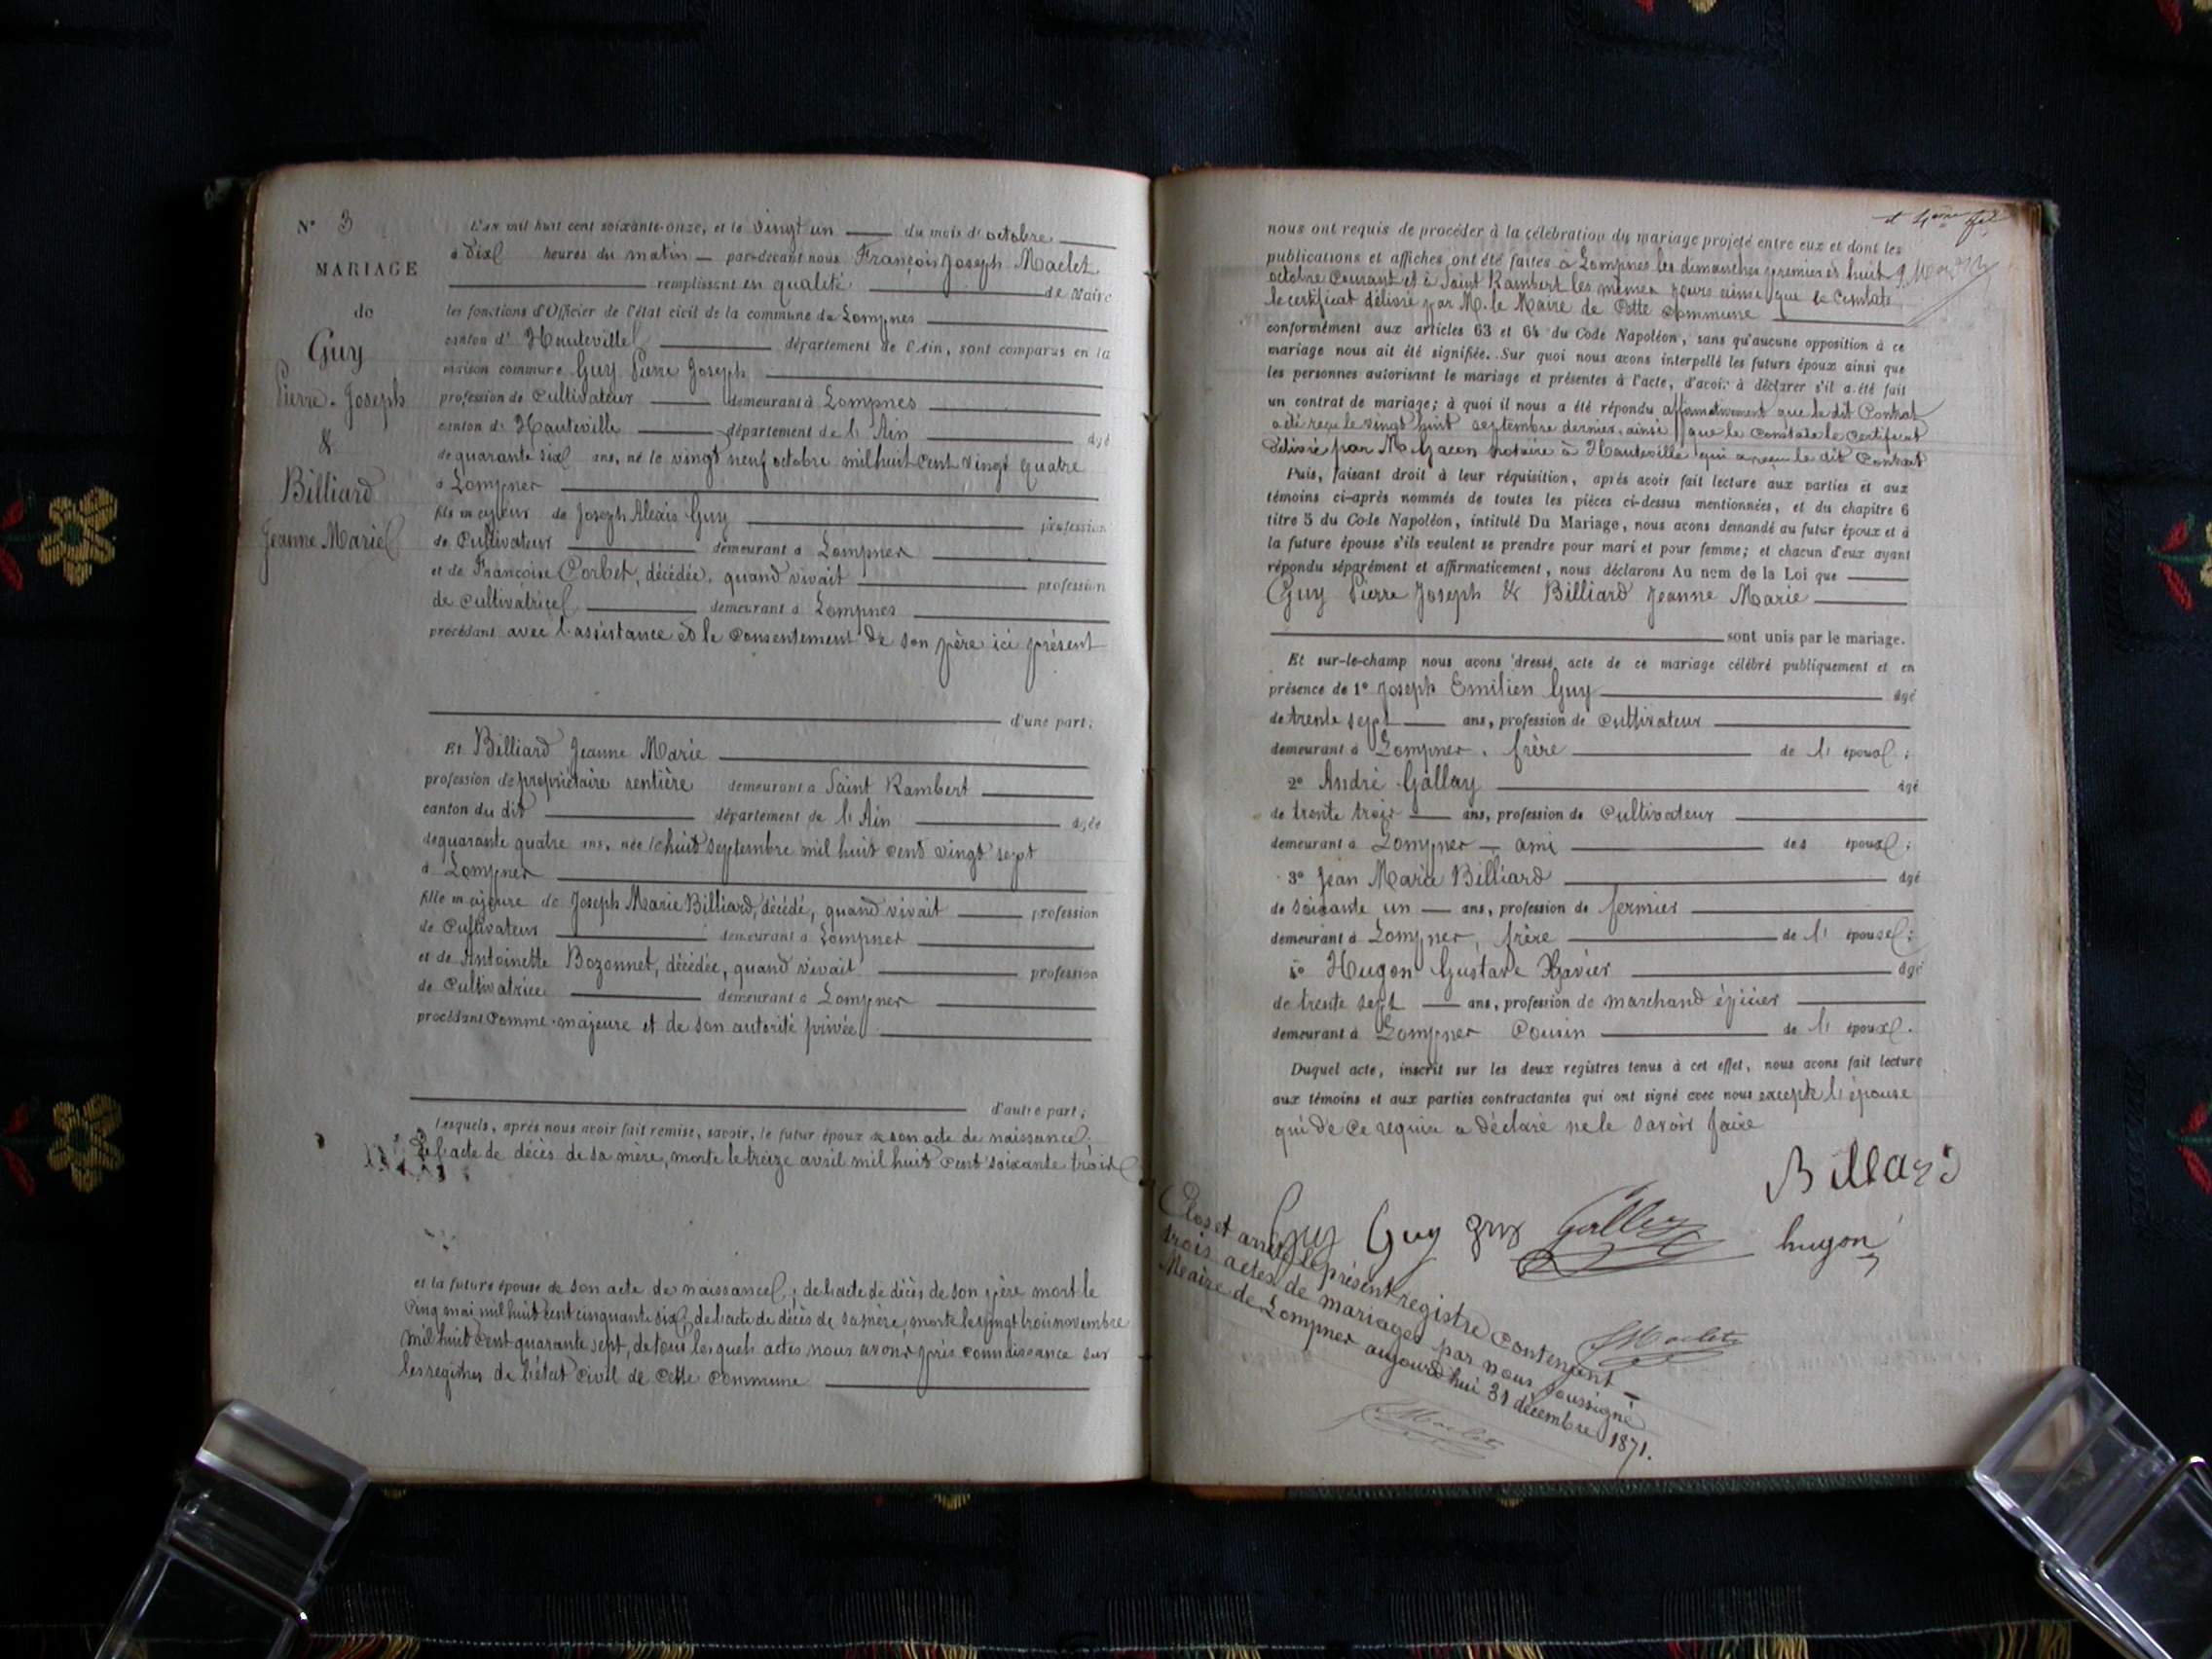 N° 3
MARIAGE
de
Guy
Pierre-Joseph
&
Billiard
Jeanne Marie
L'an mil huit cent soixante-onze, et le vingt un du mois d'octobre
à dix heures du matin par-devant nous François Joseph Maclet
remplissant en qualité de Maire
les fonctions d'Officier de l'état civil de la commune de Lompnes
canton d' Hauteville département de l'Ain, sont comparus en la
maison commune Guy Pierre Joseph
profession de cultivateur demeurant à Lompnes
canton d. Hauteville département de l' Ain âgé
de quarante six ans, né le vingt neuf octobre mil huit cent vingt quatre
à Lompnes
fils majeur de Joseph Alexis Guy profession
de Cultivateur demeurant à Lompnes
et de Françoise Corbet, décédée, quand vivait profession
de cultivatrice demeurant à Lompnes
procédant avec l'assistance et le consentement de son père ici présent
d'une part;
Et Billiard Jeanne Marie
profession de propriétaire rentière demeurant à Saint Rambert
canton du dit département de l' Ain âgée
de quarante quatre ans, née le huit septembre mil huit cent vingt sept
à Lompnes
fille majeure de Joseph Marie Billiard, décédé, quand vivait profession
de Cultivateur demeurant à Lompnes
et de Antoinette Bozonnet, décédée, quand vivait profession
de Cultivatrice demeurant à Lompnes
procédant comme majeure et de son autorité privée
d'autre part;
Lesquels, après nous avoir fait remise, savoir, le futur époux de son acte de naissance,
de l'acte de décès de sa mère, morte le treize avril mil huit cent soixante trois
et la future épouse de son acte de naissance, de l'acte de décès de son père mort le
cinq mai mil huit cent cinquante six, de l'acte de décès de sa mère, morte le vingt trois novembre
mil huit cent quarante sept, de tous lesquels actes nous avons pris connaissance sur
les registres de l'état civil de cette commune
nous ont requis de procéder à la célébration du mariage projeté entre eux et dont les
publications et affiches ont été faites à Lompnes les dimanches premier et huit
octobre courant et à Saint Rambert les mêmes jours ainsi que le constate
le certificat délivré par M. le Maire de cette commune
conformément aux articles 63 et 64 du Code Napoléon, sans qu'aucune opposition à ce
mariage nous ait été signifiée. Sur quoi nous avons interpellé les futurs époux ainsi que
les personnes autorisant le mariage et présentes à l'acte, d'avoir à déclarer s'il a été fait
un contrat de mariage; à quoi il nous a été répondu affirmativement que le dit Contrat
a été reçu le vingt huit septembre dernier, ainsi que le constate le certificat
délivré par M. notaire à Hauteville qui a reçu le dit Contrat
Puis, faisant droit à leur réquisition, après avoir fait lecture aux parties et aux
témoins ci-après nommés de toutes les pièces ci-dessus mentionnées, et du chapitre 6
titre 5 du Code Napoléon, intitulé Du Mariage, nous avons demandé au futur époux et à
la future épouse s'ils veulent se prendre pour mari et pour femme; et chacun d'eux ayant
répondu séparément et affirmativement, nous déclarons Au nom de la Loi que
Guy Pierre Joseph & Billiard Jeanne Marie
sont unis par le mariage.
Et sur-le-champ nous avons dressé acte de ce mariage célébré publiquement et en
présence de 1° Joseph Emilien Guy âgé
de trente sept ans, profession de cultivateur
demeurant à Lompnes, frère de l' époux;
2° André Gallay âgé
de trente trois ans, profession de cultivateur
demeurant à Lompnes ami des époux;
3° Jean Marie Billiard âgé
de soixante un ans, profession de fermier
demeurant à Lompnes, frère de l' épouse;
4° Hugon Gustave Xavier âgé
de trente sept ans, profession de marchand épicier
demeurant à Lompnes Cousin de l' époux.
Duquel acte, inscrit sur les deux registres tenus à cet effet, nous avons fait lecture
aux témoins et aux parties contractantes qui ont signé avec nous excepté l'épouse
qui de ce requise a déclaré ne le savoir faire
Billard
Guy Guy guy Gallay hugon
Maclet
Clos et arrêté le présent registre contenant
trois actes de mariages par nous soussigné
Maire de Lompnes aujourd'hui 31 décembre 1871.
Maclet